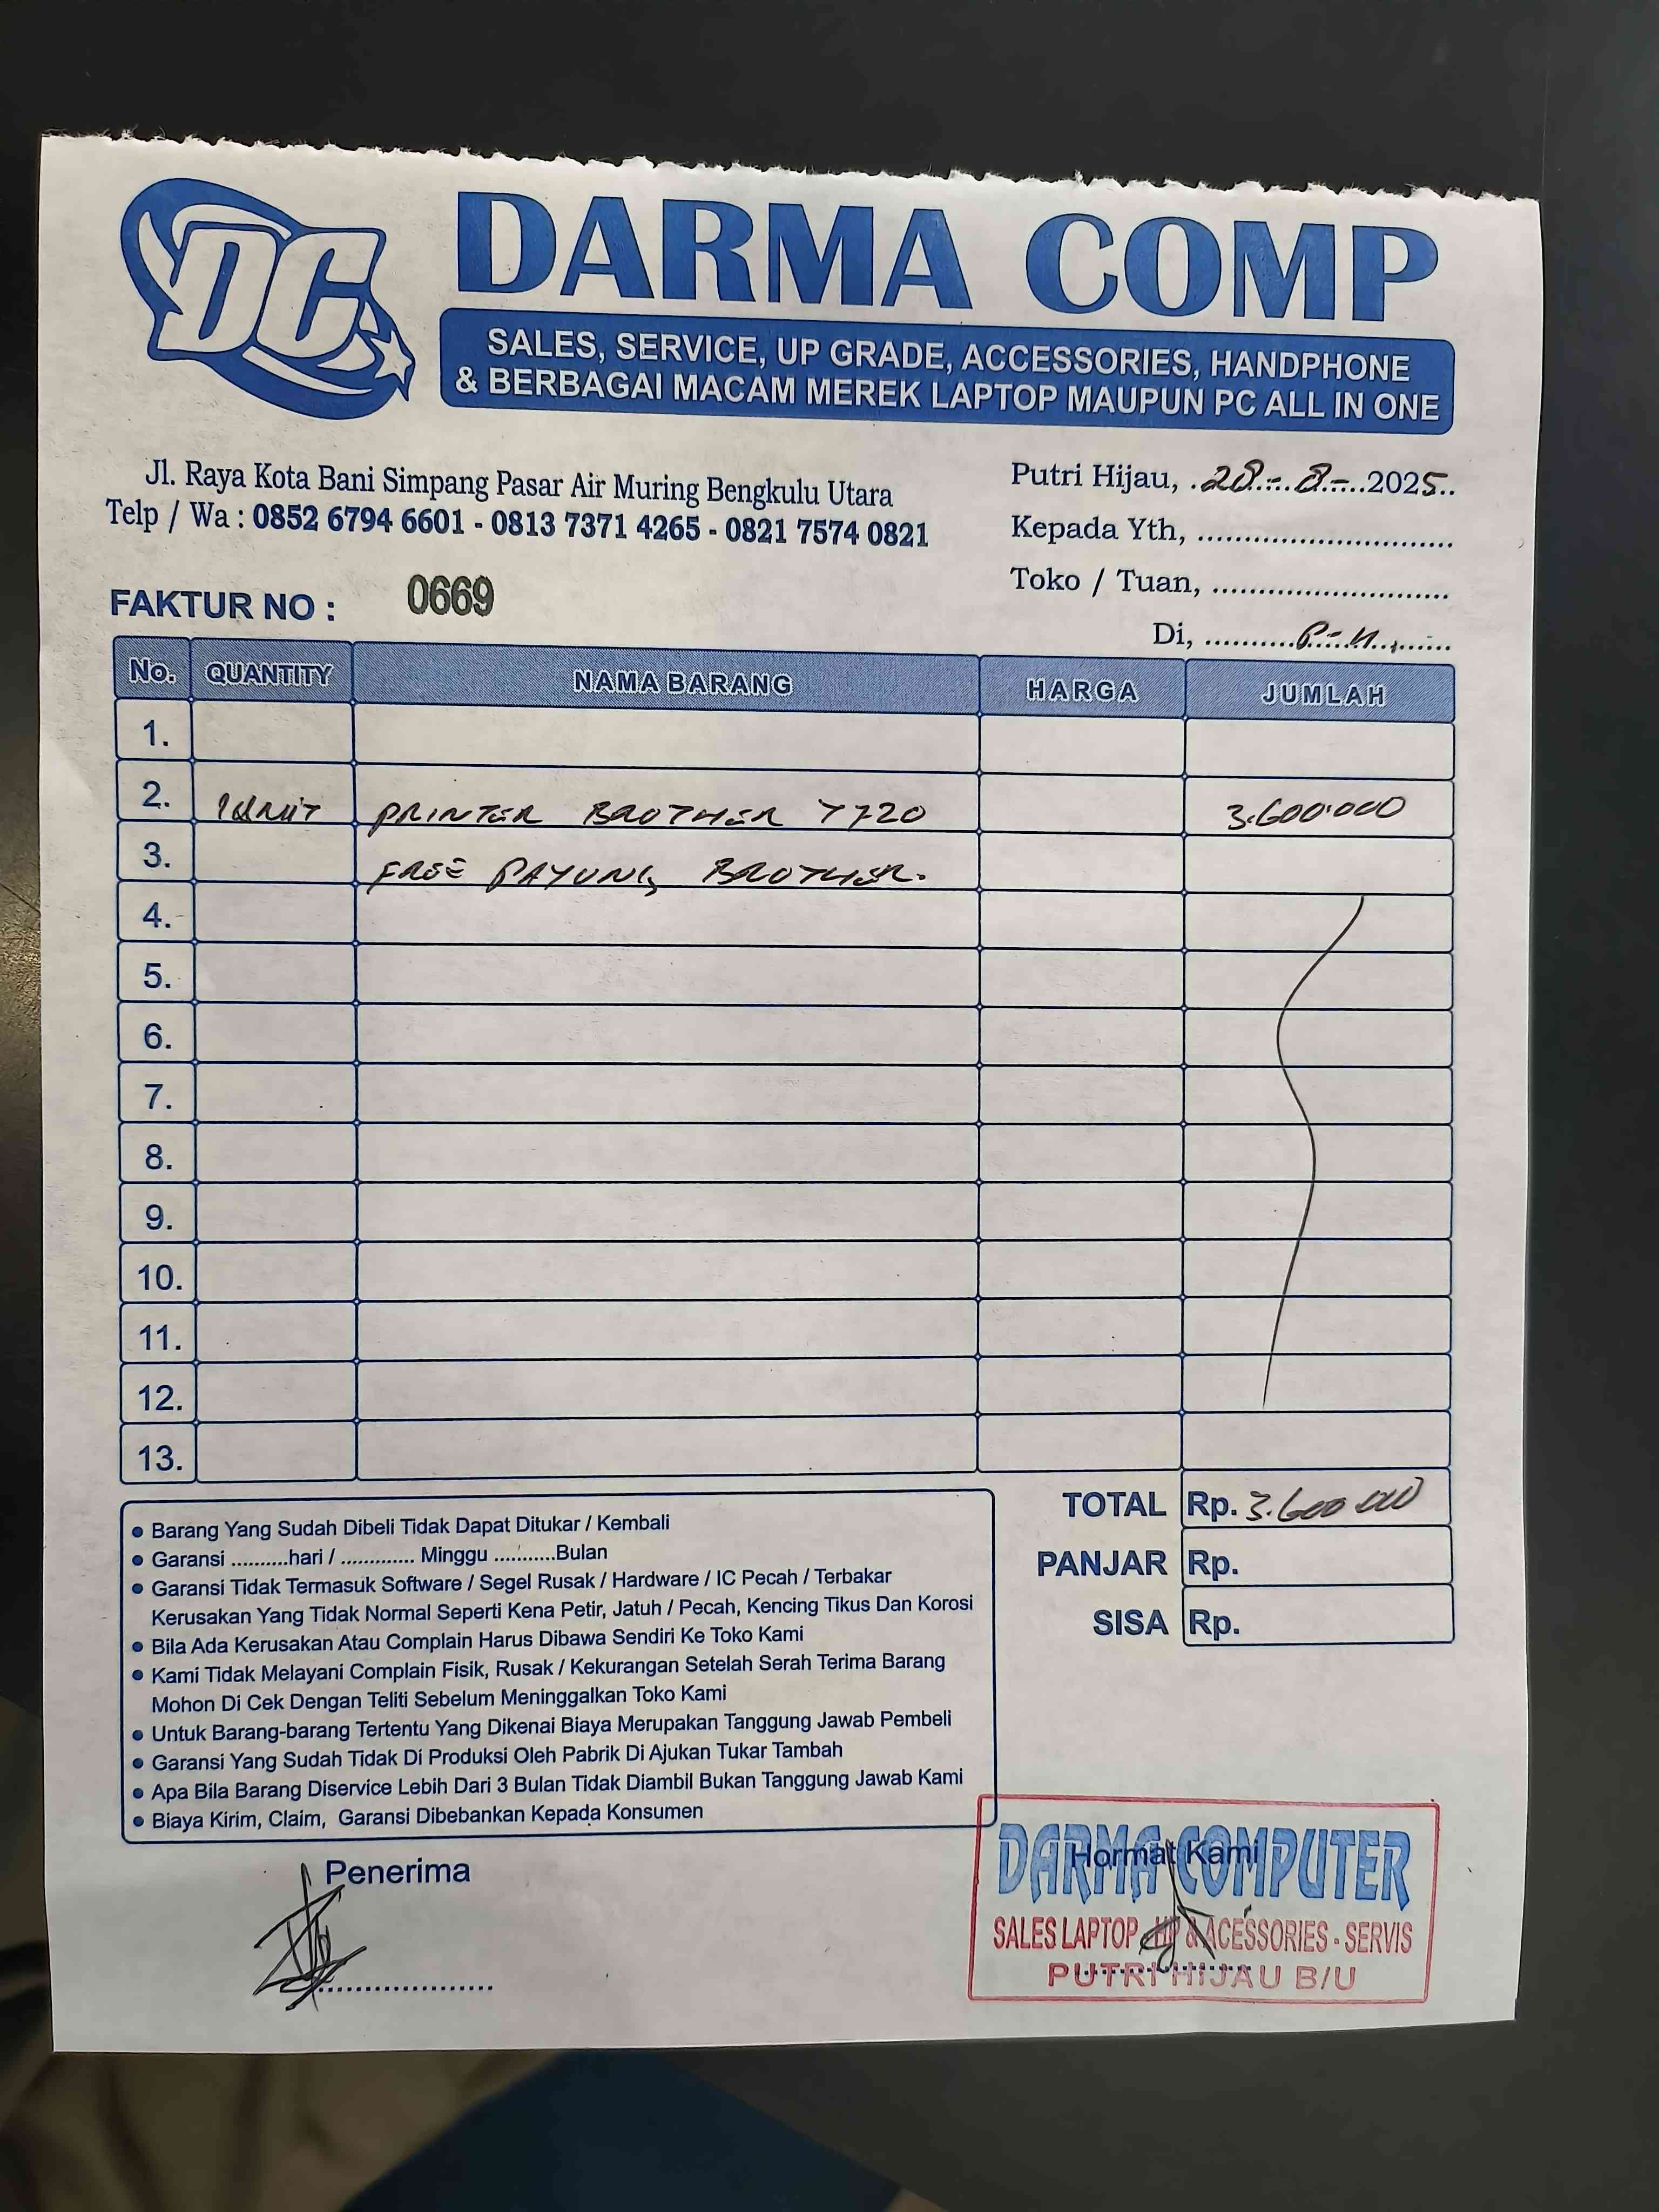 DC
DARMA COMP
SALES, SERVICE, UP GRADE, ACCESSORIES, HANDPHONE
& BERBAGAI MACAM MEREK LAPTOP MAUPUN PC ALL IN ONE
Jl. Raya Kota Bani Simpang Pasar Air Muring Bengkulu Utara
Telp / Wa : 0852 6794 6601 - 0813 7371 4265 - 0821 7574 0821
Putri Hijau, 28-8-2025
Kepada Yth, ............................
Toko / Tuan, ..........................
FAKTUR NO : 0669
Di,
No. QUANTITY NAMA BARANG HARGA JUMLAH
1.
2. 1 UNIT PRINTER BROTHER T720 3.600.000
3. FREE PAYUNG BROTHER.
4.
5.
6.
7.
8.
9.
10.
11.
12.
13.
TOTAL Rp. 3.600.000
PANJAR Rp.
SISA Rp.
• Barang Yang Sudah Dibeli Tidak Dapat Ditukar / Kembali
• Garansi ..........hari / ............. Minggu ...........Bulan
• Garansi Tidak Termasuk Software / Segel Rusak / Hardware / IC Pecah / Terbakar
Kerusakan Yang Tidak Normal Seperti Kena Petir, Jatuh / Pecah, Kencing Tikus Dan Korosi
• Bila Ada Kerusakan Atau Complain Harus Dibawa Sendiri Ke Toko Kami
• Kami Tidak Melayani Complain Fisik, Rusak / Kekurangan Setelah Serah Terima Barang
Mohon Di Cek Dengan Teliti Sebelum Meninggalkan Toko Kami
• Untuk Barang-barang Tertentu Yang Dikenai Biaya Merupakan Tanggung Jawab Pembeli
• Garansi Yang Sudah Tidak Di Produksi Oleh Pabrik Di Ajukan Tukar Tambah
• Apa Bila Barang Diservice Lebih Dari 3 Bulan Tidak Diambil Bukan Tanggung Jawab Kami
• Biaya Kirim, Claim, Garansi Dibebankan Kepada Konsumen
Penerima
Hormat Kami
DARMA COMPUTER
SALES LAPTOP - HP & ACESSORIES - SERVIS
PUTRI HIJAU B/U